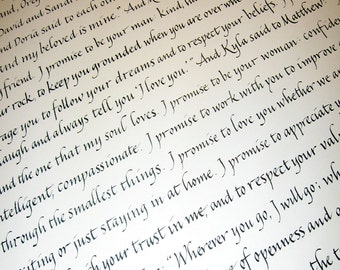 David and Sarah
And Doria said to each other
and my beloved is mine." And K
friend. I promise to be your man. Kind, h
our rock, to keep you grounded when you are over whe
age you to follow your dreams and to respect your beliefs. I
laugh and always tell you 'I love you.'" And Kyfa said to Matthew:
nd the one that my soul loves. I promise to be your woman: confiden
telligent, compassionate. I promise to work with you to improve o
through the smallest things. I promise to love you whether we a
uiting or just staying in at home. I promise to appreciate y
h your trust in me, and to respect your val
: "Wherever you go, I will go; wh
of openness and o
the t